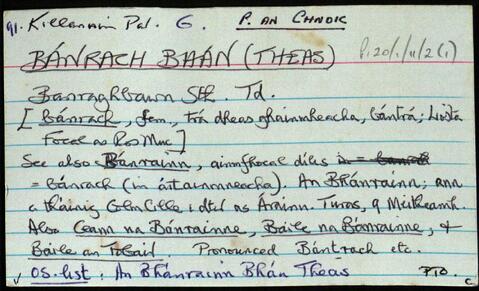 91. Killannin Par. G. P. AN CHNOIC
BÁNRACH BHÁN (THEAS) P.20/11/2(1)
Banraghbawn Sth. Td.
[Bánrach, fem, trá dheas ghainmheacha, bántrá; Liosta
Focal as Ros Muc]
See also Bánrainn, ainmfhocal dílis
= bánrach (in áitainmneacha). An Bhánrainn; ann
a tháinig Colm Cille i dtír as Árainn. Turas, 9 Meitheamh.
Also Ceann na Bánrainne, Baile na Bánrainne, &
Baile an Tobair. Pronounced Bántrach etc.
✓ OS. list: An Bhánrainn Bhán Theas PTO.
C.